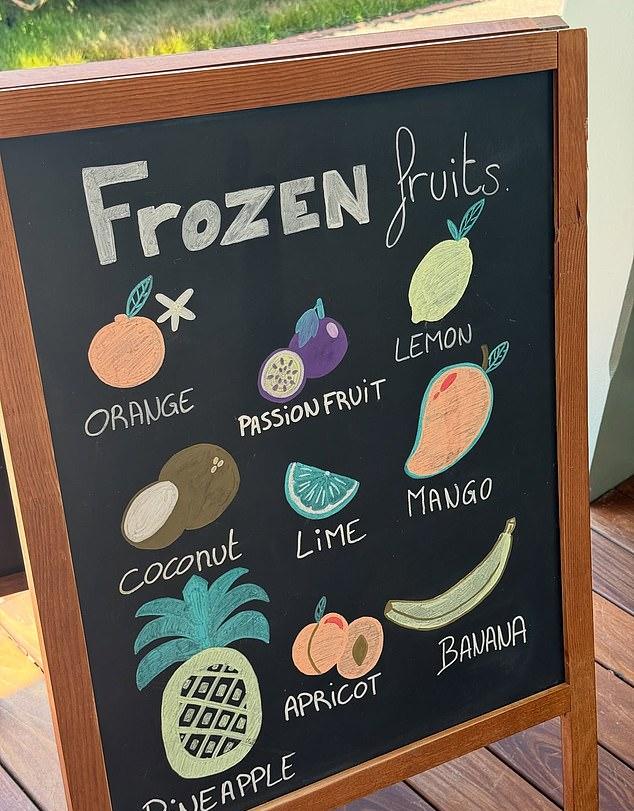 FROZEN fruits.
ORANGE
PASSION FRUIT
LEMON
COCONUT
LIME
MANGO
PINEAPPLE
APRICOT
BANANA